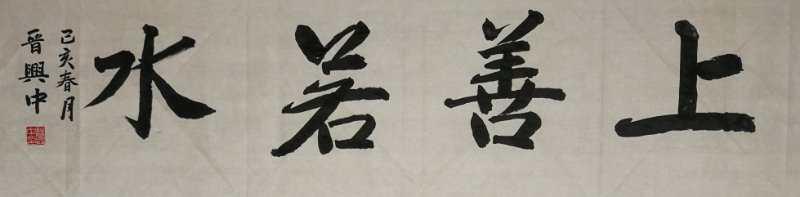 上善若水
己亥春月
晉興中